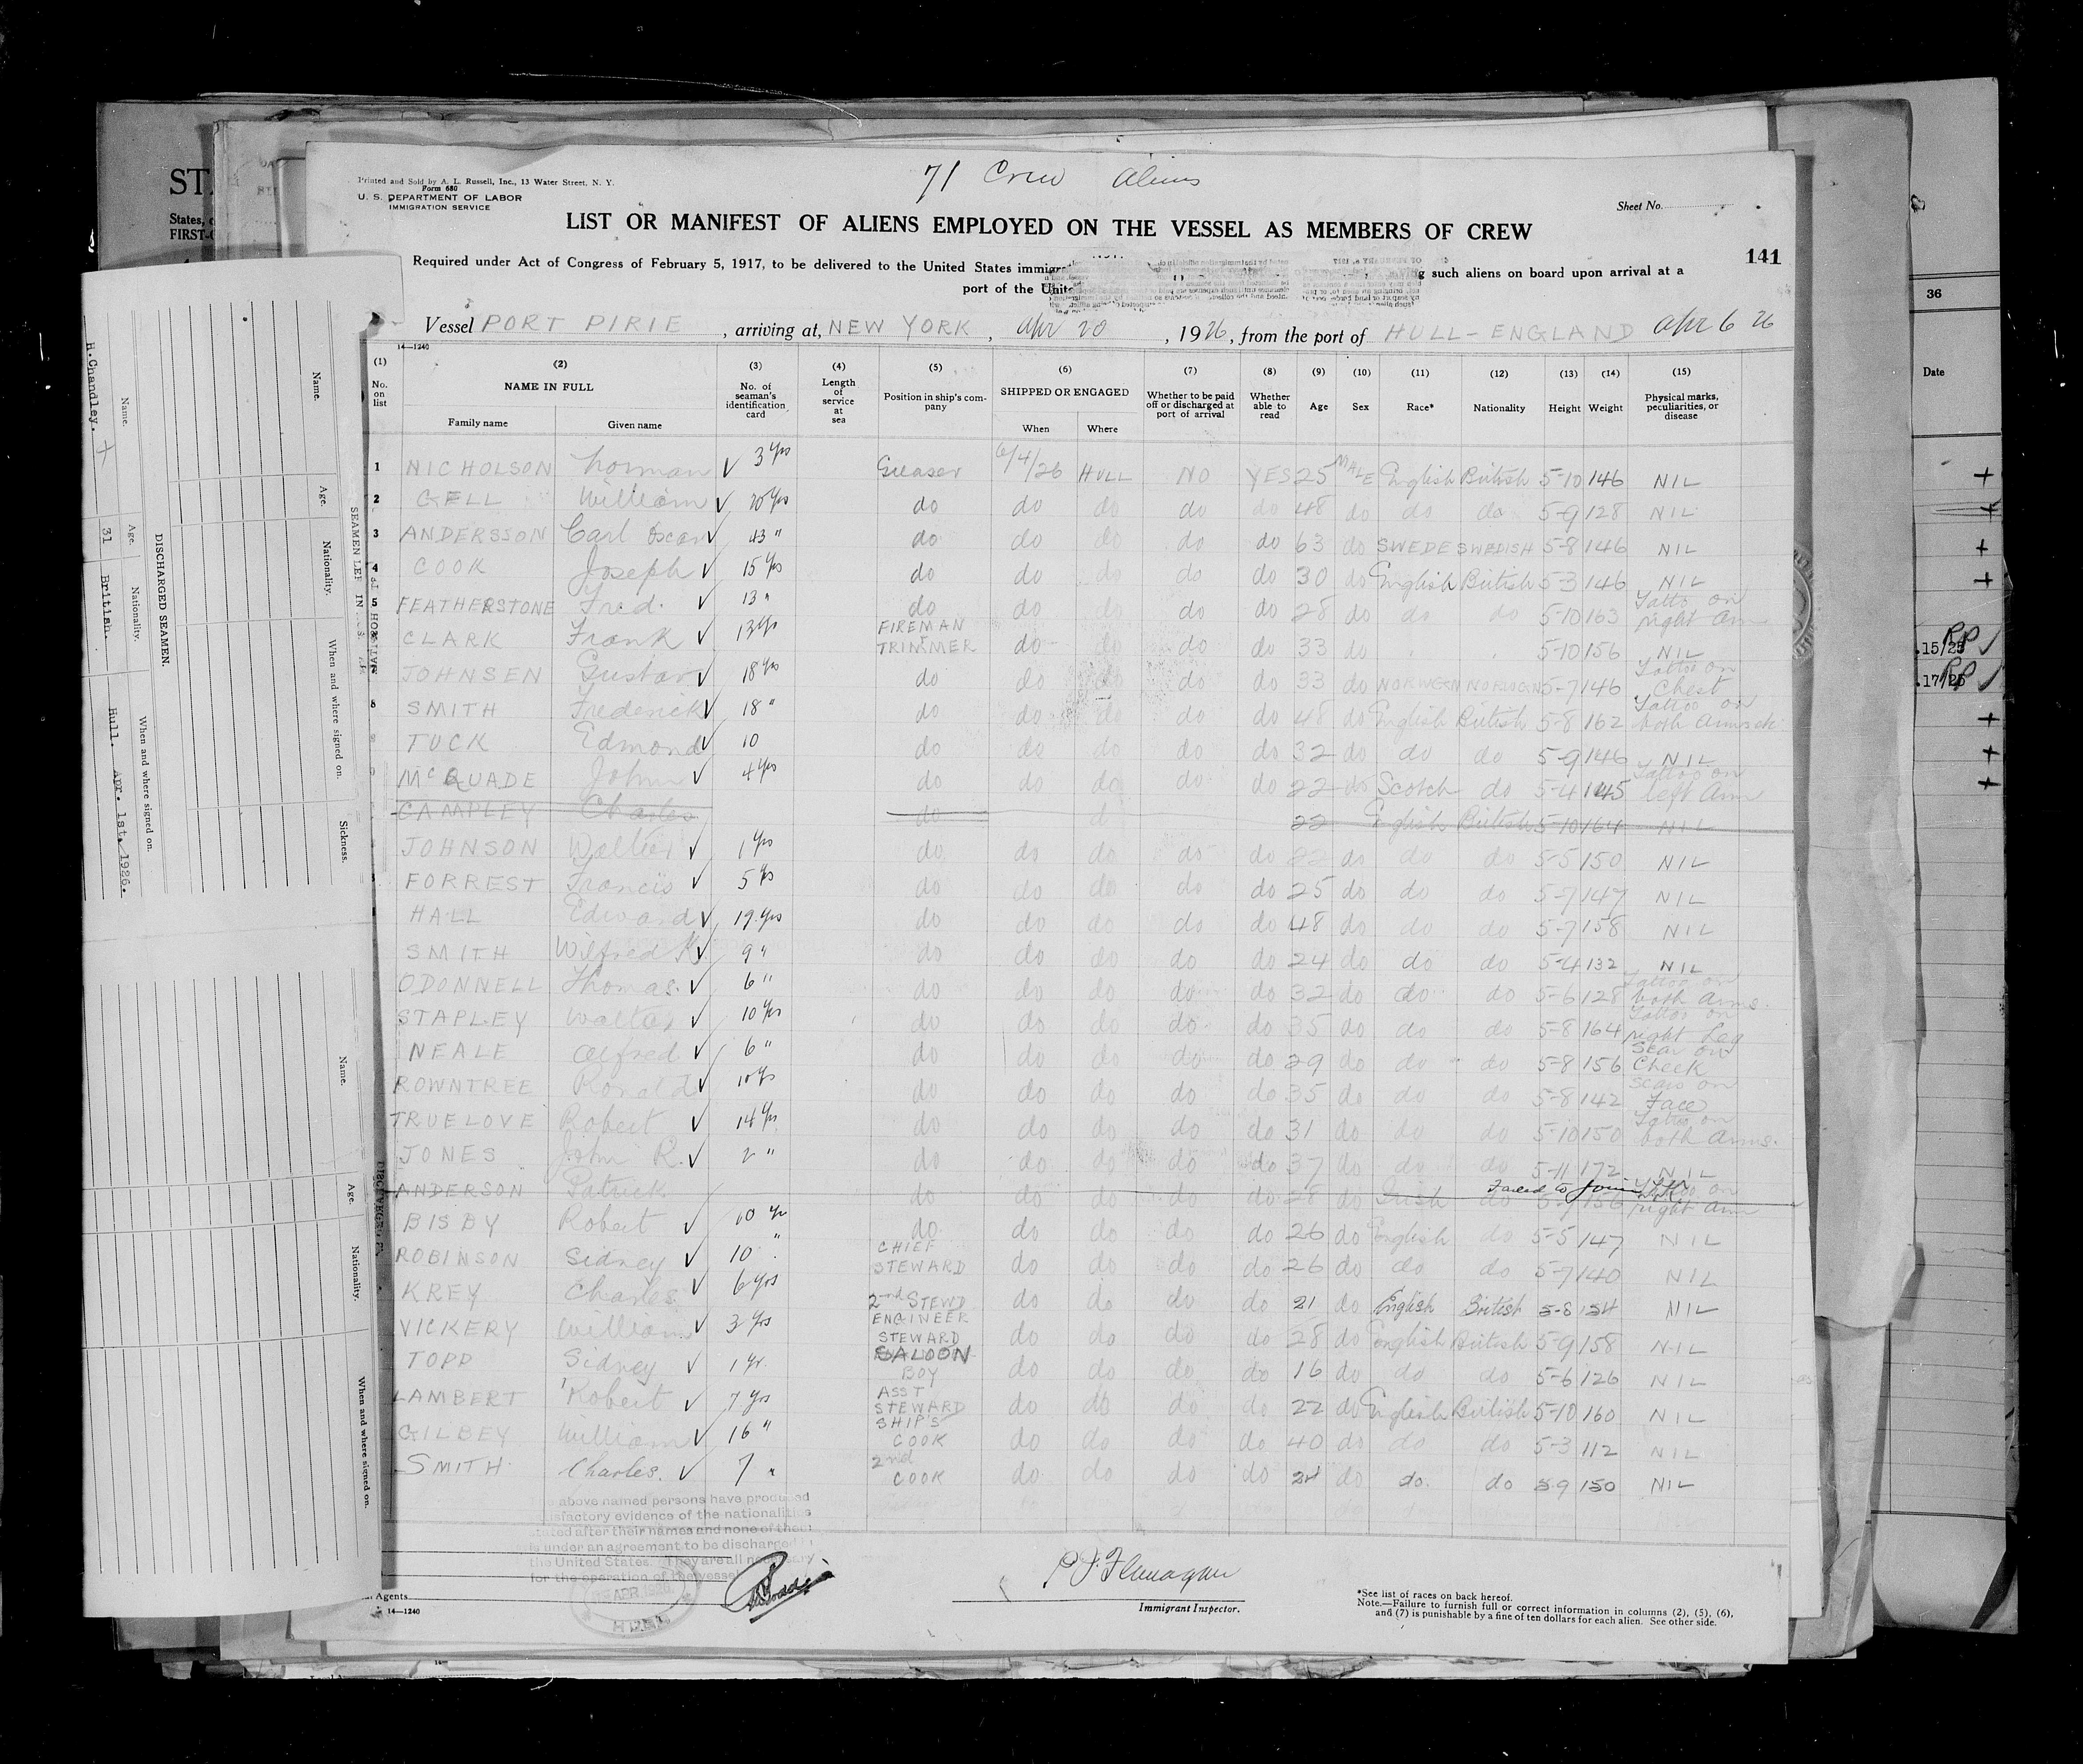 71 Crew Aliens
Printed and Sold by A. L. Russell, Inc., 13 Water Street, N. Y.
Form 680
U. S. DEPARTMENT OF LABOR
IMMIGRATION SERVICE
Sheet No.
LIST OR MANIFEST OF ALIENS EMPLOYED ON THE VESSEL AS MEMBERS OF CREW
141
Required under Act of Congress of February 5, 1917, to be delivered to the United States such aliens on board upon arrival at a
port of the
Vessel PORT PIRIE, arriving at, NEW YORK, Apr 20, 1926, from the port of HULL - ENGLAND Apr 6 26
14—1240
(1) (2) (3) (4) (5) (6) (7) (8) (9) (10) (11) (12) (13) (14) (15)
No. on list NAME IN FULL Family name Given name No. of seaman's identification card Length of service at sea Position in ship's company SHIPPED OR ENGAGED When Where Whether to be paid off or discharged at port of arrival Whether able to read Age Sex Race* Nationality Height Weight Physical marks, peculiarities, or disease
1 NICHOLSON Norman ✓ 3 yrs Greaser 6/4/26 HULL NO YES 25 MALE English British 5-10 146 NIL
2 GELL William ✓ 20 yrs do do do do do 48 do do do 5-9 128 NIL
3 ANDERSSON Carl Oscar ✓ 43 " do do do do do 63 do SWEDE SWEDISH 5-8 146 NIL
4 COOK Joseph ✓ 15 yrs do do do do do 30 do English British 5-3 146 NIL
5 FEATHERSTONE Fred. ✓ 13 " do do do do do 28 do do do 5-10 163 Tatto on right Arm
CLARK Frank ✓ 13 yrs FIREMAN TRIMMER do do do do 33 do 5-10 156 NIL
JOHNSEN Gustav ✓ 18 yrs do do do do do 33 do NORWGN NORWGN 5-7 146 Tattoo on Chest
8 SMITH Frederick ✓ 18 " do do do do do 48 do English British 5-8 162 Tattoo on both Arms
TUCK Edmond ✓ 10 do do do do do 32 do do do 5-9 146 NIL
McQUADE John ✓ 4 yrs do do do do do 22 do Scotch do 5-4 145 Tattoo on left Arm
CAMPLEY Charles do 22 English British 5-10 164 NIL
JOHNSON Walter ✓ 1 yrs do do do do do 22 do do do 5-5 150 NIL
FORREST Francis ✓ 5 yrs do do do do do 25 do do do 5-7 147 NIL
HALL Edward ✓ 19 yrs do do do do do 48 do do do 5-7 158 NIL
SMITH Wilfred K. ✓ 9 " do do do do do 24 do do do 5-4 132 NIL
ODONNELL Thomas. ✓ 6 " do do do do do 32 do do do 5-6 128 Tattoo on both Arms.
STAPLEY Walter ✓ 10 yrs do do do do do 35 do do do 5-8 164 Tattoo on right Leg
NEALE Alfred ✓ 6 " do do do do do 29 do do do 5-8 156 Scar on Cheek
ROWNTREE Ronald ✓ 10 yrs do do do do do 35 do do do 5-8 142 Scars on Face
TRUELOVE Robert ✓ 14 yrs. do do do do do 31 do do do 5-10 150 Tattoo on both Arms.
JONES John R. ✓ 2 " do do do do do 37 do do do 5-11 172 NIL
ANDERSON Patrick do do do do do 28 do Irish do 156 Failed to join Tattoo on right Arm
BISBY Robert ✓ 10 yrs do do do do do 26 do English do 5-5 147 NIL
ROBINSON Sidney ✓ 10 " CHIEF STEWARD do do do do 26 do do do 5-7 140 NIL
KREY Charles. ✓ 6 yrs 2nd STEWD do do do do 21 do English British 5-8 154 NIL
VICKERY William ✓ 3 yrs ENGINEER STEWARD do do do do 28 do English British 5-9 158 NIL
TOPP Sidney ✓ 1 yr. SALOON BOY do do do do 16 do do do 5-6 126 NIL
LAMBERT Robert ✓ 7 yrs ASST STEWARD do do do do 22 do English British 5-10 160 NIL
GILBEY William ✓ 16 " SHIP'S COOK do do do do 40 do do do 5-3 112 NIL
SMITH Charles. ✓ 7 " 2nd COOK do do do do 24 do do. do 5-9 150 NIL
above named persons have produced
satisfactory evidence of the nationalities
stated after their names and none of them
is under an agreement to be discharged
the United States. They are all necessary
for the operation of the vessel
P J Flanagan
Immigrant Inspector.
Agents
14—1240
*See list of races on back hereof.
Note.—Failure to furnish full or correct information in columns (2), (5), (6),
and (7) is punishable by a fine of ten dollars for each alien. See other side.
DISCHARGED SEAMEN.
Name. Age. Nationality. When and where signed on.
H.Chandley. 31 British. Hull. Apr. 1st, 1926.
Name. Age. Nationality. When and where signed on. Sickness.
Name. Age. Nationality. When and where signed on.
36
Date
.15/25 RP
.17/25 RP